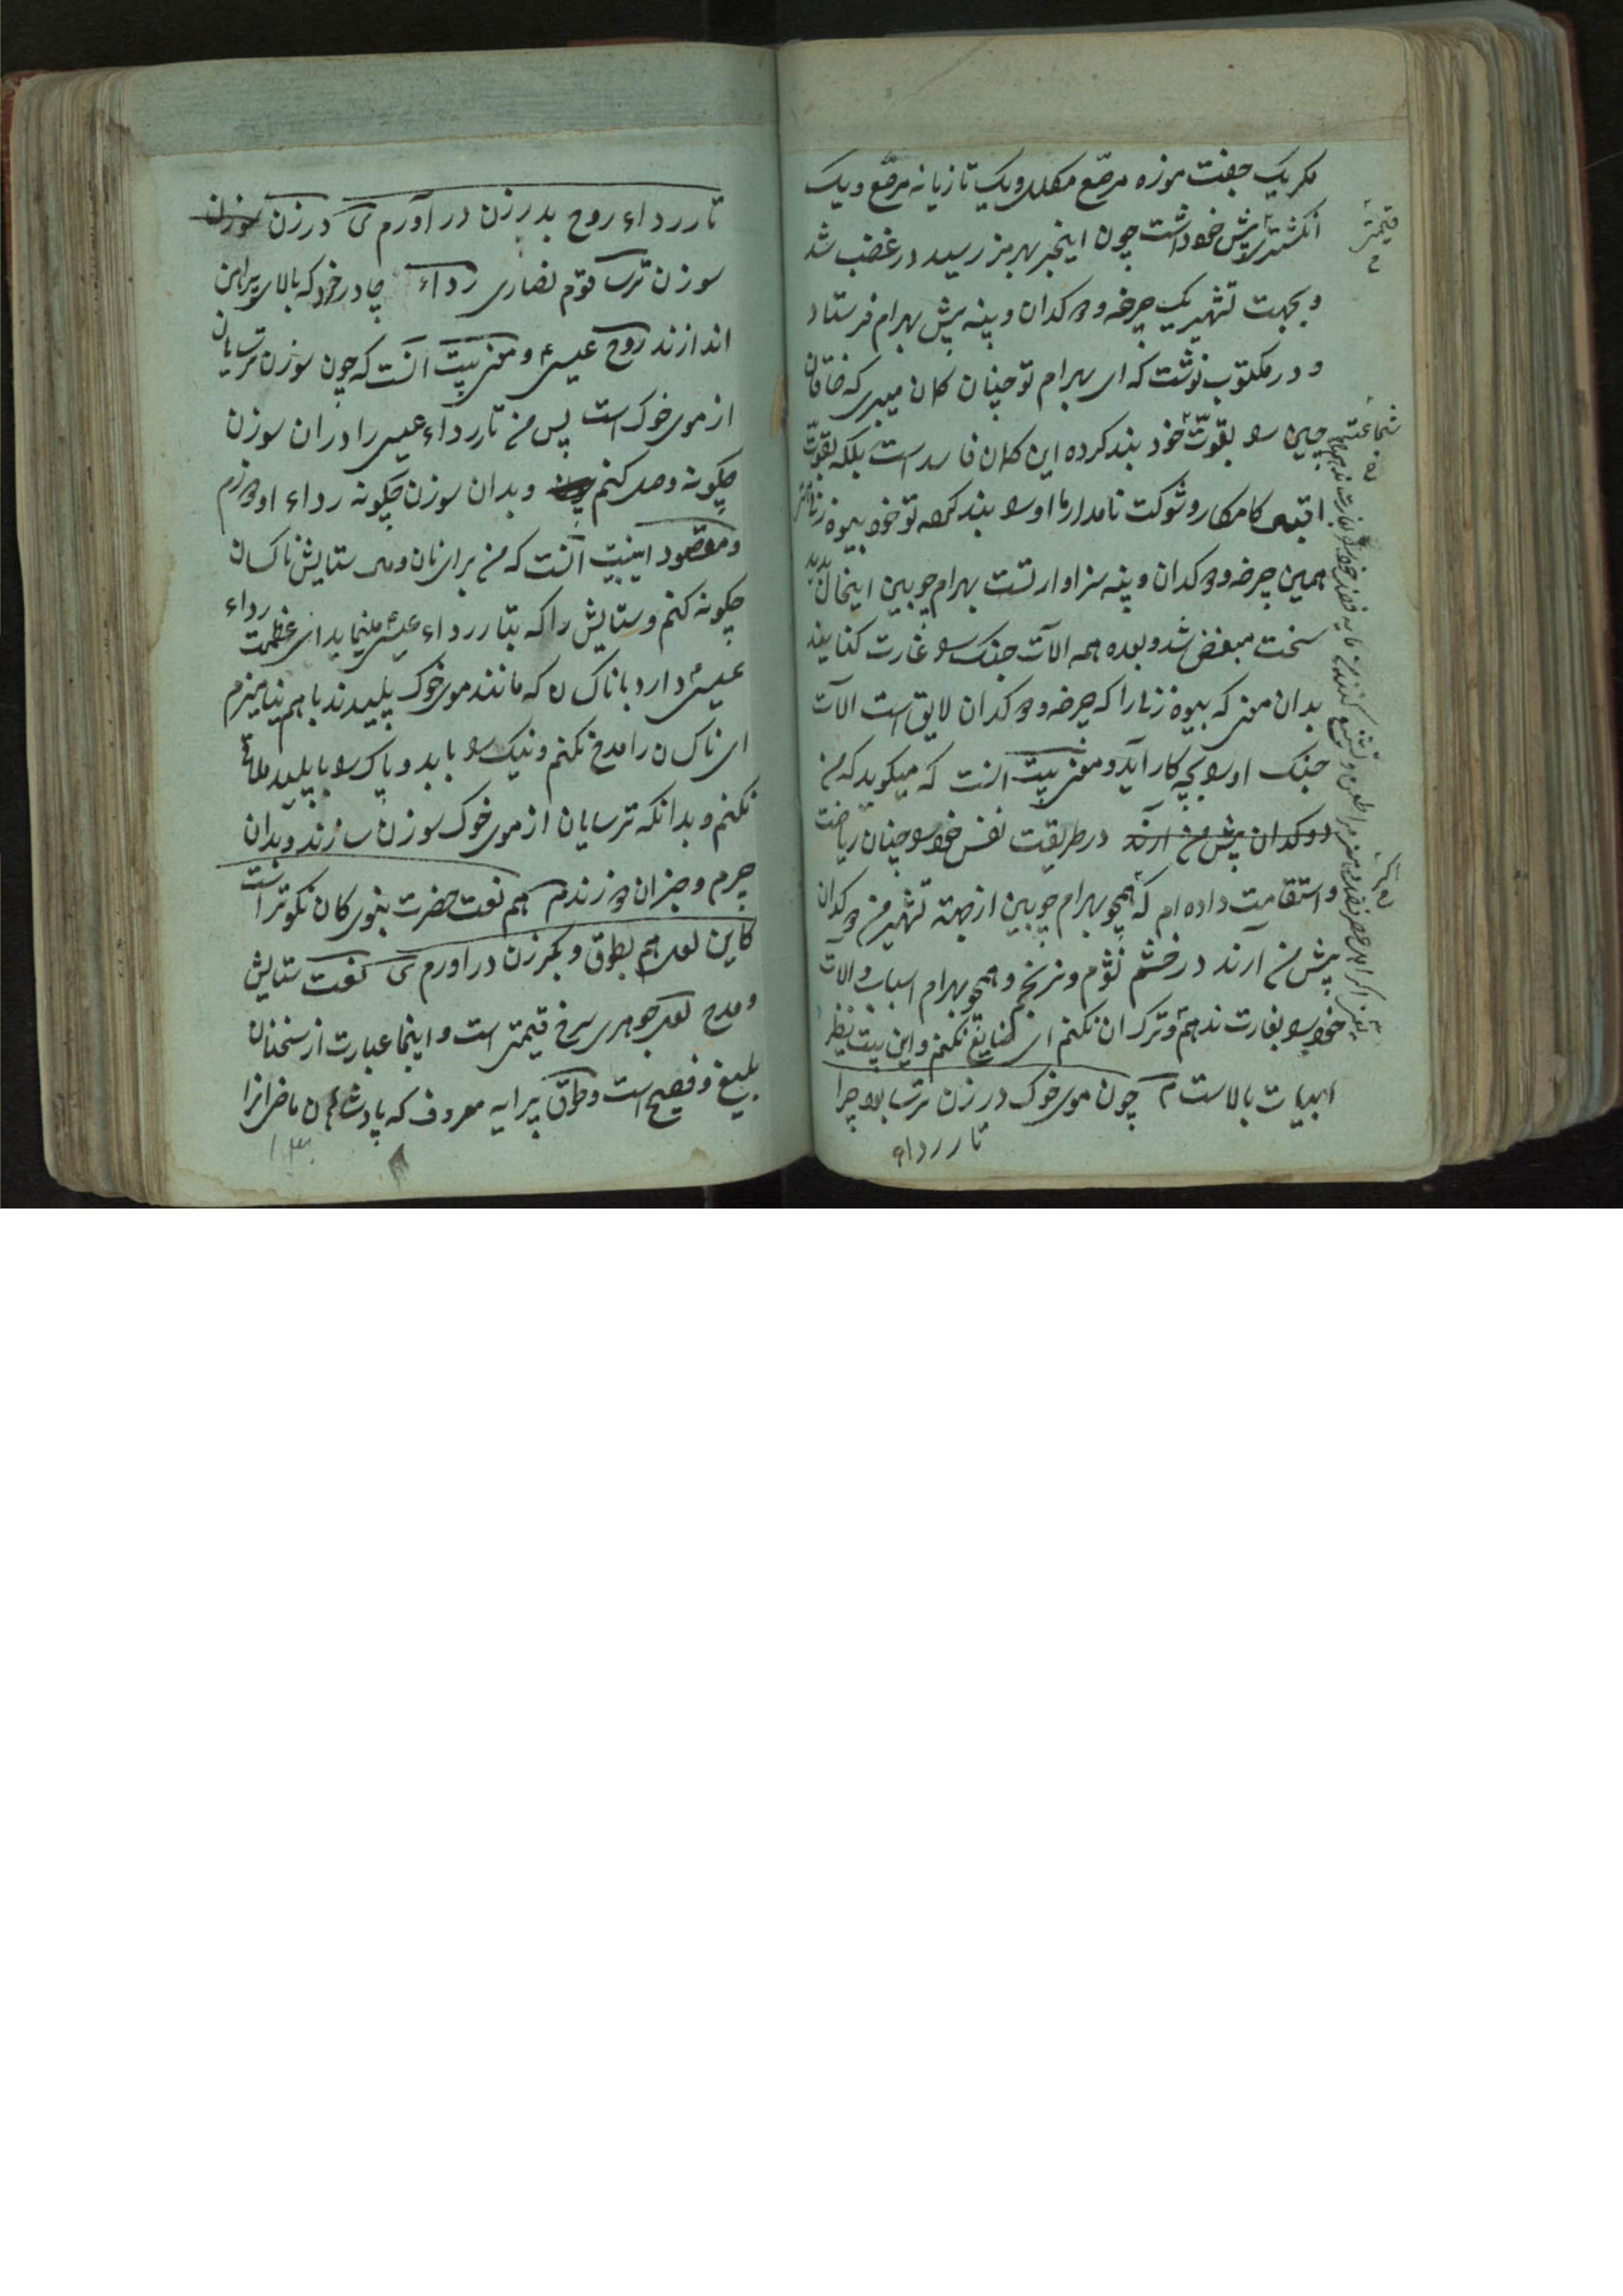 مکر یک جفت موزه مرصّع مکلل و یک تازیانه مرصّع و یک
انکشتری پیش خود داشت چون اینخبر بهرمز رسید در غضب شد
و بجهت تشهیر یک چرخه و دوکدان و پنبه پیش بهرام فرستاد
و در مکتوب نوشت که ای بهرام تو چنان کمان میبری که خاقان
چین را بقوّت خود بند کرده این کمان فاسد است بلکه بقوّت
اقبال کامکار و شوکت نامدار ما او را بند کرده تو خود بیوه زنی
همین چرخه و دوکدان و پنبه سزاوار تست بهرام چوبین اینحال بدید
سخت مبغض شد و بعده همه الات جنک را غارت کنانید
بدان معنی که بیوه زنانرا که چرخه و دوکدان لایق است الآت
جنک او را بچه کار آید و معنی بیت انست که میکوید که من
دوکدان پیش من ارند در طریقت نفس خود را چنان ریاضت
و استقامت داده ام که همچو بهرام چوبین از جهته تشهیر من دوکدان
پیش من آرند در خشم نشوم و نرنجم و همچو بهرام اسباب و الات
خود را بغارت ندهم و ترک ان نکنم ای ضایع نکنم و این بیت نظیر
ابیات بالاست م چون موی خوک در زن ترسا بود چرا
تار رداء
قیمتی
شجاعت
تار رداء روح بدرزن در آورم ی درزن سوزن
سوزن ترسا قوم نصاری رداء چادر خرد که بالای پیراهن
اندازند روح عیسی و معنی بیت آنست که چون سوزن ترسایان
از موی خوک است پس من تار رداء عیسی را در ان سوزن
چکونه وصل کنم و بدان سوزن چکونه رداء او دوزم
و مقصود اینبیت آنست که من برای نان و مال ستایش ناکسان
چکونه کنم و ستایش را که بتار رداء عیسی مینماید ای عظمت رداء
عیسی دارد با ناکسان که مانند موی خوک پلیدند با هم نیامیزم
ای ناکسان را مدح نکنم و نیک را با بد و پاک را با پلید ملاقی
نکنم و بدانکه ترسایان از موی خوک سوزن سازند و بدان
چرم و جز ان دوزند م هم نعت حضرت نبوی کان نکوتر است
کاین لعل هم بطوق و کمرزن در اورم ی نعت ستایش
و مدح لعل جوهری سرخ قیمتی است و اینجا عبارت از سخنان
بلیغ و فصیح است و طوق پیرایه معروف که پادشاهان ماضی انرا